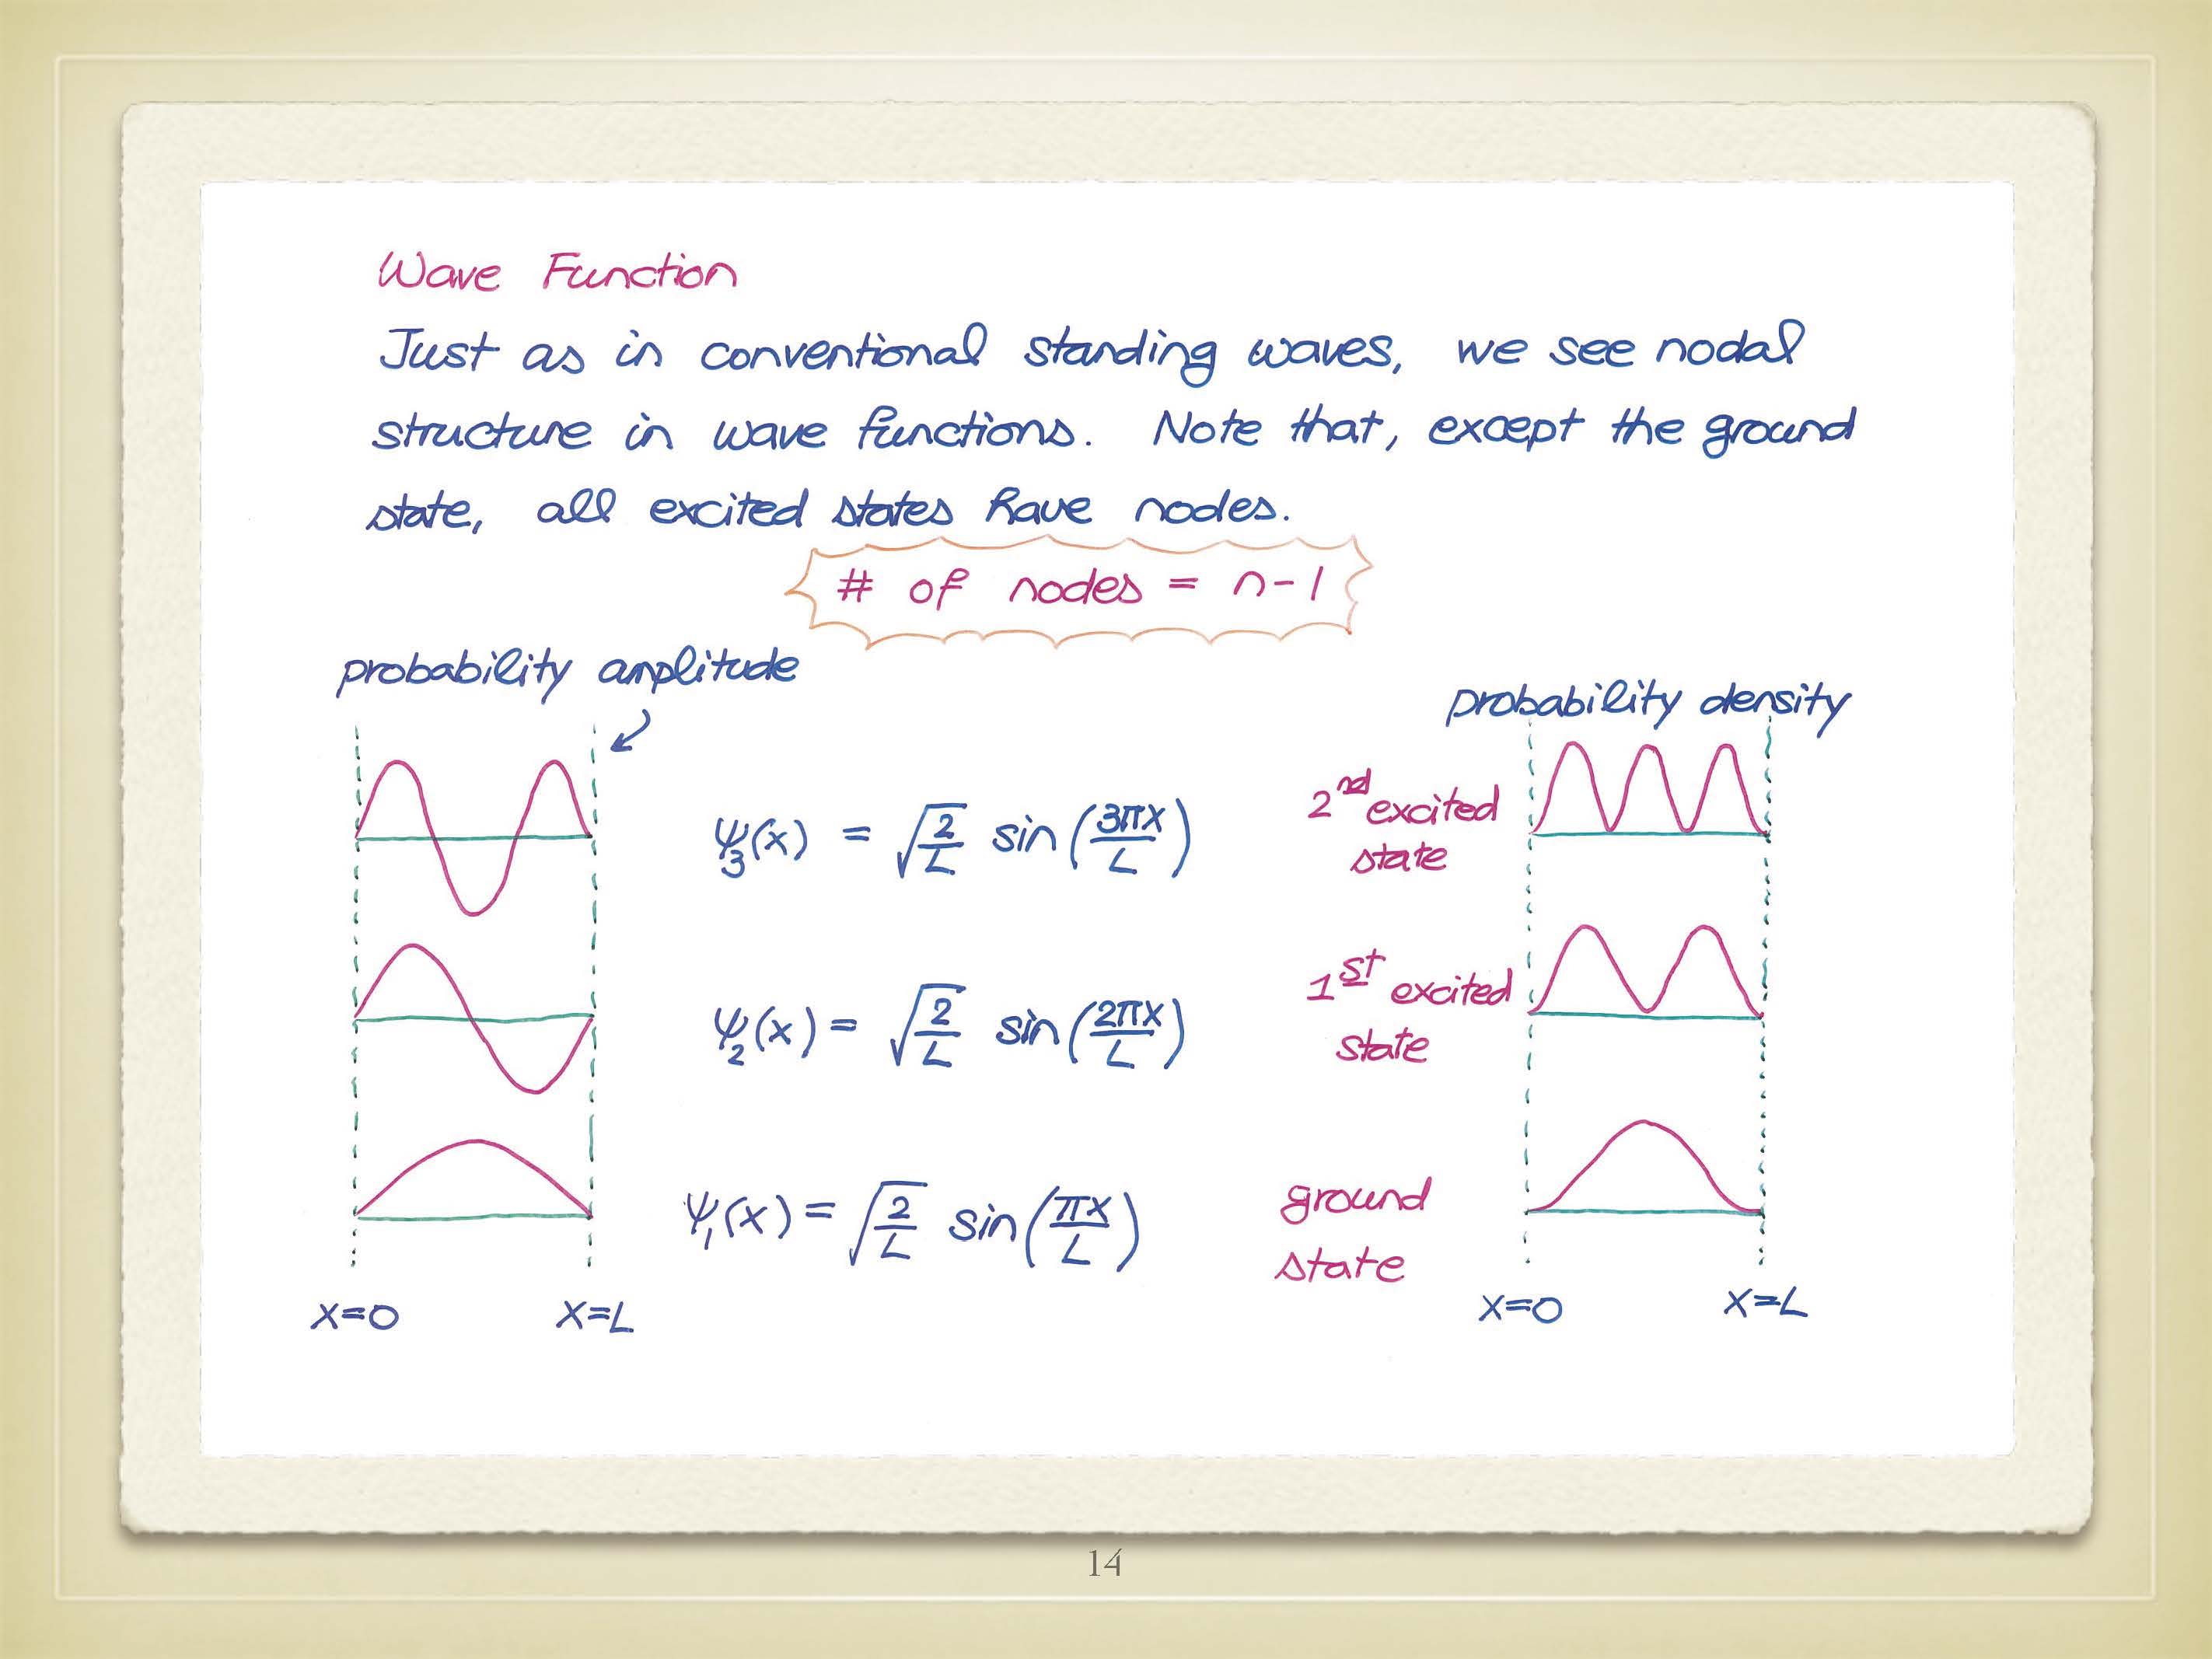 Wave Function
Just as in conventional standing waves, we see nodal
structure in wave functions. Note that, except the ground
state, all excited states have nodes.
# of nodes = n-1
probability amplitude
probability density
ψ₃(x) = √(2/L) sin(3πx/L)
2nd excited
state
ψ₂(x) = √(2/L) sin(2πx/L)
1st excited
state
ψ₁(x) = √(2/L) sin(πx/L)
ground
state
x=0
x=L
x=0
x=L
14